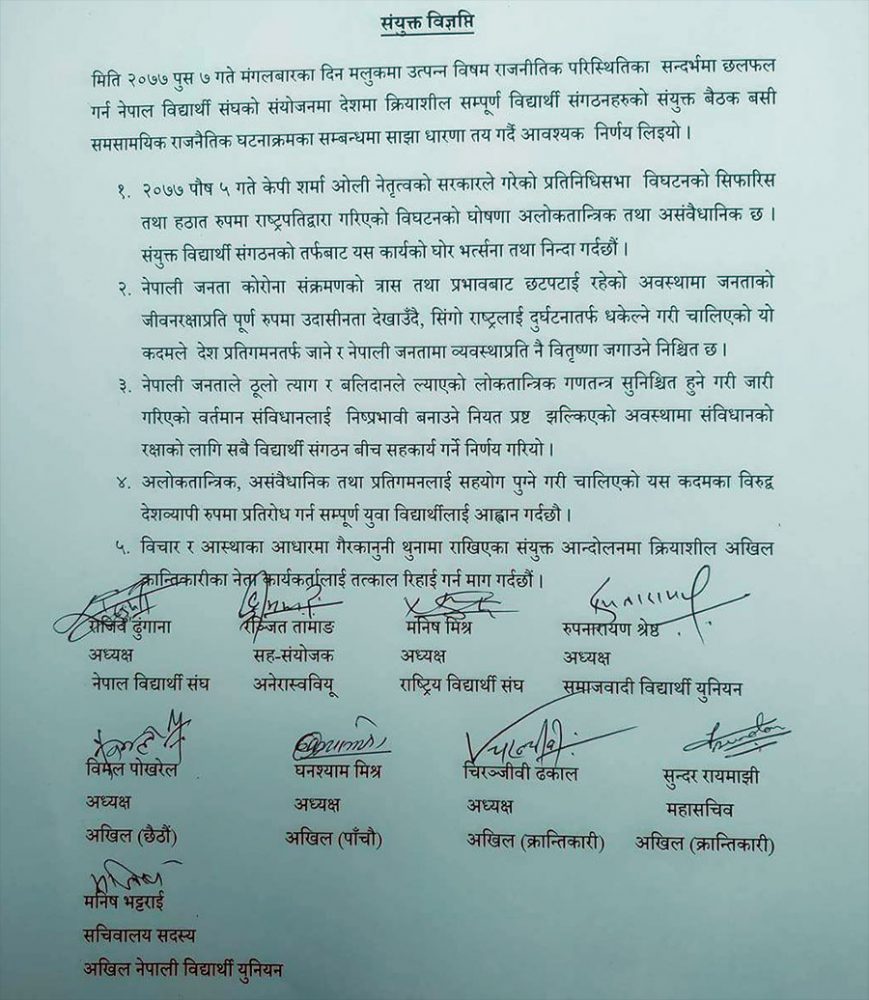 संयुक्त विज्ञप्ति
मिति २०७७ पुस ७ गते मंगलबारका दिन मलुकमा उत्पन्न विषम राजनीतिक परिस्थितिका सन्दर्भमा छलफल
गर्न नेपाल विद्यार्थी संघको संयोजनमा देशमा क्रियाशील सम्पूर्ण विद्यार्थी संगठनहरुको संयुक्त बैठक बसी
समसामयिक राजनैतिक घटनाक्रमका सम्बन्धमा साझा धारणा तय गर्दै आवश्यक निर्णय लिइयो ।
१. २०७७ पौष ५ गते केपी शर्मा ओली नेतृत्वको सरकारले गरेको प्रतिनिधिसभा विघटनको सिफारिस
तथा हठात रुपमा राष्ट्रपतिद्वारा गरिएको विघटनको घोषणा अलोकतान्त्रिक तथा असंवैधानिक छ ।
संयुक्त विद्यार्थी संगठनको तर्फबाट यस कार्यको घोर भर्त्सना तथा निन्दा गर्दछौं ।
२. नेपाली जनता कोरोना संक्रमणको त्रास तथा प्रभावबाट छटपटाई रहेको अवस्थामा जनताको
जीवनरक्षाप्रति पूर्ण रुपमा उदासीनता देखाउँदै, सिंगो राष्ट्रलाई दुर्घटनातर्फ धकेल्ने गरी चालिएको यो
कदमले देश प्रतिगमनतर्फ जाने र नेपाली जनतामा व्यवस्थाप्रति नै वितृष्णा जगाउने निश्चित छ ।
३. नेपाली जनताले ठूलो त्याग र बलिदानले ल्याएको लोकतान्त्रिक गणतन्त्र सुनिश्चित हुने गरी जारी
गरिएको वर्तमान संविधानलाई निष्प्रभावी बनाउने नियत प्रष्ट झल्किएको अवस्थामा संविधानको
रक्षाको लागि सबै विद्यार्थी संगठन बीच सहकार्य गर्ने निर्णय गरियो ।
४. अलोकतान्त्रिक, असंवैधानिक तथा प्रतिगमनलाई सहयोग पुग्ने गरी चालिएको यस कदमका विरुद्व
देशव्यापी रुपमा प्रतिरोध गर्न सम्पूर्ण युवा विद्यार्थीलाई आह्वान गर्दछौ ।
५. विचार र आस्थाका आधारमा गैरकानुनी थुनामा राखिएका संयुक्त आन्दोलनमा क्रियाशील अखिल
क्रान्तिकारीका नेता कार्यकर्तालाई तत्काल रिहाई गर्न माग गर्दछौं ।
राजिव ढुंगाना रञ्जित तामाङ मनिष मिश्र रुपनारायण श्रेष्ठ
अध्यक्ष सह-संयोजक अध्यक्ष अध्यक्ष
नेपाल विद्यार्थी संघ अनेरास्ववियू राष्ट्रिय विद्यार्थी संघ समाजवादी विद्यार्थी युनियन
विमल पोखरेल घनश्याम मिश्र चिरञ्जीवी ढकाल सुन्दर रायमाझी
अध्यक्ष अध्यक्ष अध्यक्ष महासचिव
अखिल (छैठौं) अखिल (पाँचौ) अखिल (क्रान्तिकारी) अखिल (क्रान्तिकारी)
मनिष भट्टराई
सचिवालय सदस्य
अखिल नेपाली विद्यार्थी युनियन